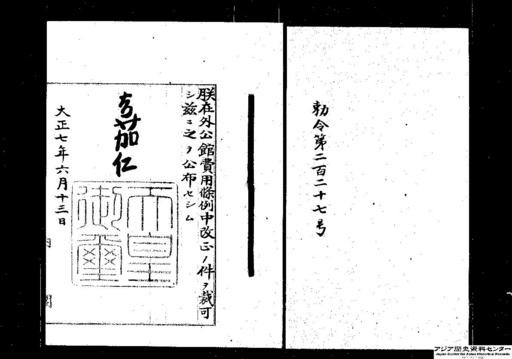 勅令第二百二十七号
朕在外公館費用條例中改正ノ件ヲ裁可
シ茲ニ之ヲ公布セシム
嘉仁
天皇御璽
大正七年六月十三日
内閣
アジア歴史資料センター
Japan Center for Asian Historical Records